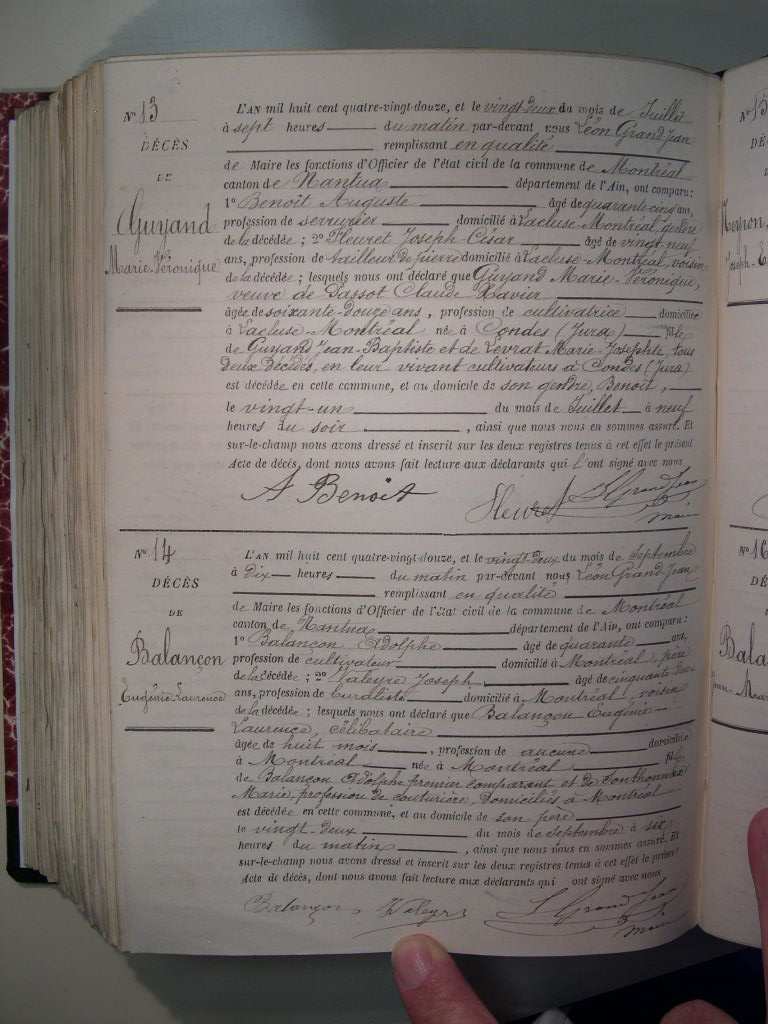 N° 13
DÉCÈS
DE
Guyand
Marie-Véronique
L'AN mil huit cent quatre-vingt-douze, et le vingt-deux du mois de Juillet
à sept heures du matin par-devant nous Léon GrandJean
remplissant en qualité
de Maire les fonctions d'Officier de l'état civil de la commune de Montréal
canton de Nantua département de l'Ain, ont comparu :
1° Benoît Auguste âgé de quarante cinq ans,
profession de serrurier domicilié à Lacluse-Montréal, gendre
de la décédée ; 2° Fleuret Joseph César âgé de vingt neuf
ans, profession de tailleur de pierre domicilié à Lacluse-Montréal, voisin
de la décédée ; lesquels nous ont déclaré que Guyand Marie-Véronique,
veuve de Dassot Claude Xavier
âgée de soixante-douze ans, profession de cultivatrice domiciliée
à Lacluse-Montréal né à Condes (Jura) fille
de Guyand Jean-Baptiste et de Levrat Marie-Josephte, tous
deux décédés, en leur vivant cultivateurs à Condes (Jura)
est décédée en cette commune, et au domicile de son gendre, Benoît,
le vingt-un du mois de Juillet à neuf
heures du soir, ainsi que nous nous en sommes assuré. Et
sur-le-champ nous avons dressé et inscrit sur les deux registres tenus à cet effet le présent
Acte de décès, dont nous avons fait lecture aux déclarants qui l'ont signé avec nous
A Benoît
Fleuret
L GrandJean
maire
N° 14
DÉCÈS
DE
Balançon
Eugénie Laurence
L'AN mil huit cent quatre-vingt-douze, et le vingt-deux du mois de septembre
à dix heures du matin par-devant nous Léon GrandJean
remplissant en qualité
de Maire les fonctions d'Officier de l'état civil de la commune de Montréal
canton de Nantua département de l'Ain, ont comparu :
1° Balançon Adolphe âgé de quarante ans,
profession de cultivateur domicilié à Montréal, père
de la décédée ; 2° Valeyre Joseph âgé de cinquante
ans, profession de buraliste domicilié à Montréal, voisin
de la décédée ; lesquels nous ont déclaré que Balançon Eugénie
Laurence, célibataire
âgée de huit mois, profession de aucune domiciliée
à Montréal née à Montréal fille
de Balançon Adolphe premier comparant et de
Marie, profession de couturière, domiciliés à Montréal
est décédée en cette commune, et au domicile de son père
le vingt-deux du mois de septembre à six
heures du matin, ainsi que nous nous en sommes assuré. Et
sur-le-champ nous avons dressé et inscrit sur les deux registres tenus à cet effet le présent
Acte de décès, dont nous avons fait lecture aux déclarants qui ont signé avec nous
Balançon
Valeyre
L GrandJean
maire
N° 15
N° 16